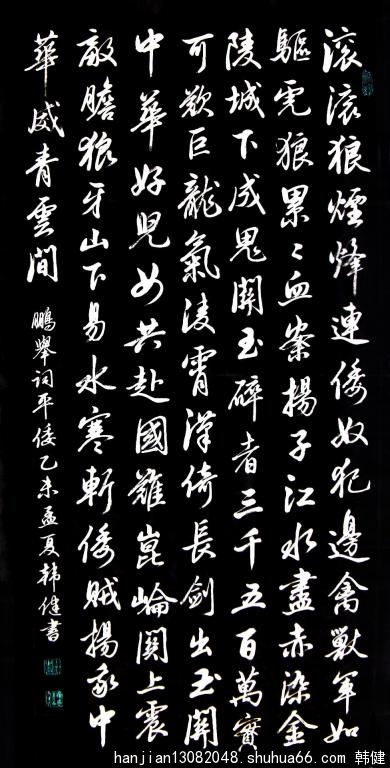 滚滚狼煙烽連倭奴犯邊禽獸軍如
驅虎狼累々血案揚子江水盡赤染金
陵城下成鬼關玉碎者三千五百萬
可欺巨龍氣凌霄漢倚長劍出玉關
中華好兒女共赴國難崑崙關上震
敵膽狼牙山下易水寒斬倭賊揚我中
華威青雲間
鵬舉词平倭乙未孟夏韩健書
hanjian13082048.shuhua66.com 韩健